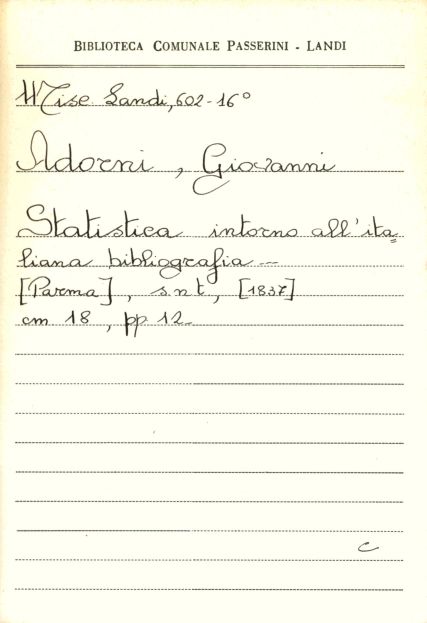 BIBLIOTECA COMUNALE PASSERINI - LANDI
Misc. Landi, 602-16°
Adorni, Giovanni
Statistica intorno all'ita=
liana bibliografia --
[Parma], s.n.t, [1837]
cm 18, pp 12-
c